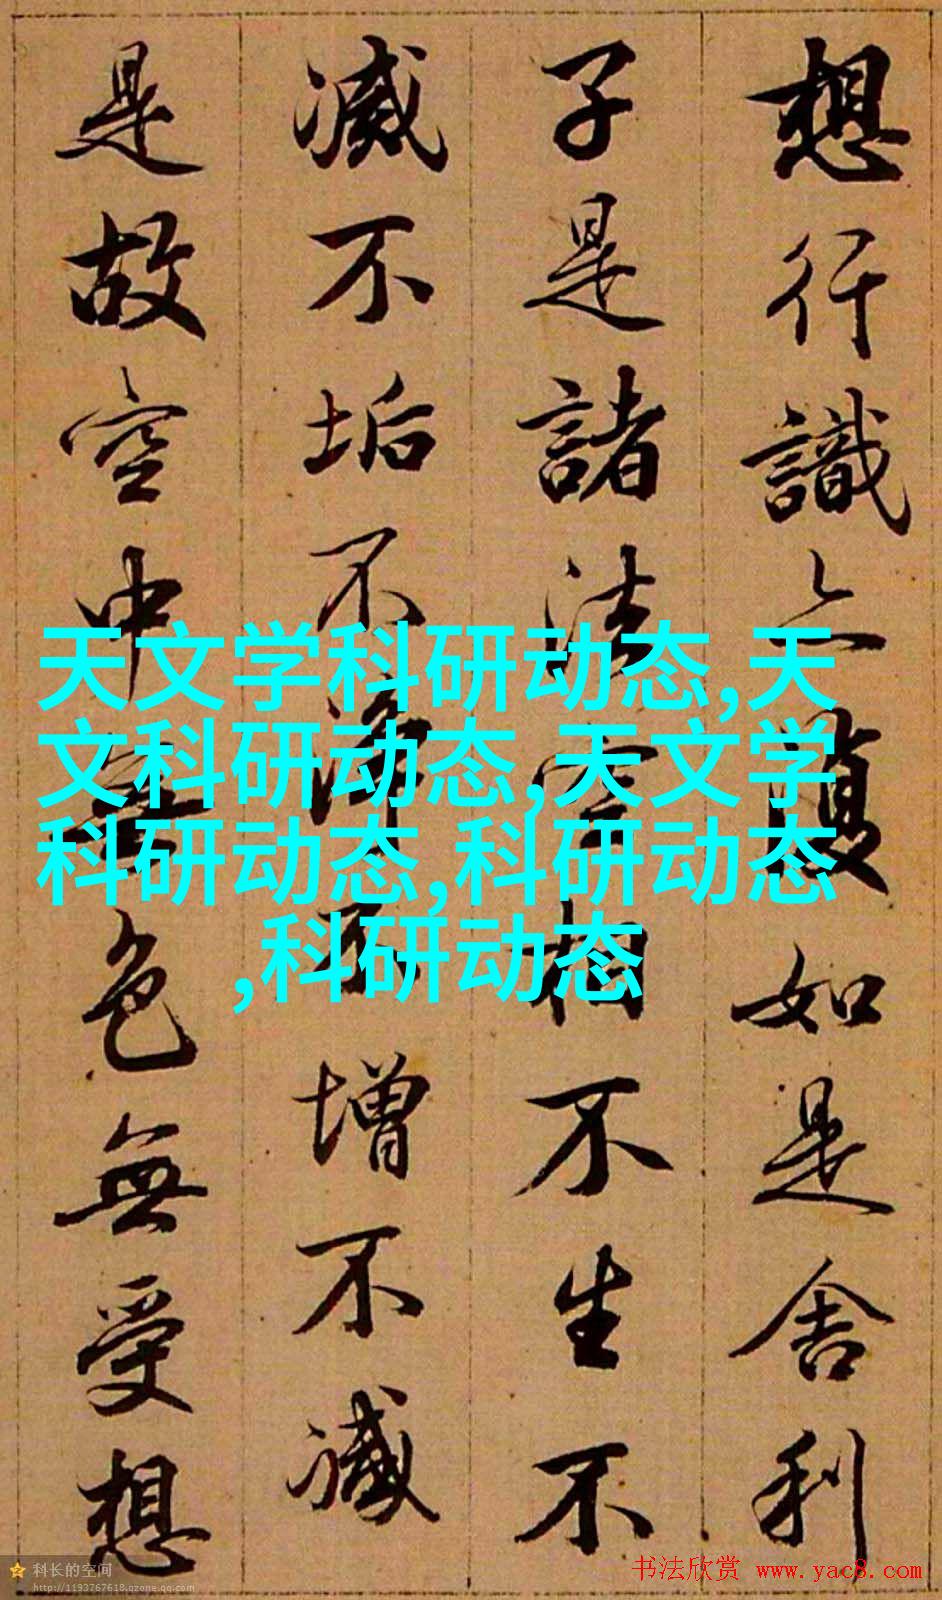 想行識亦復如是舍利
子是諸法空相不生不
滅不垢不淨不增不減
是故空中無色無受想
天文学科研动态,天
文科研动态,天文学
科研动态,科研动态
,科研动态
科长的空间
http://1193767618.qzone.qq.com
书法欣赏 www.yac8.com